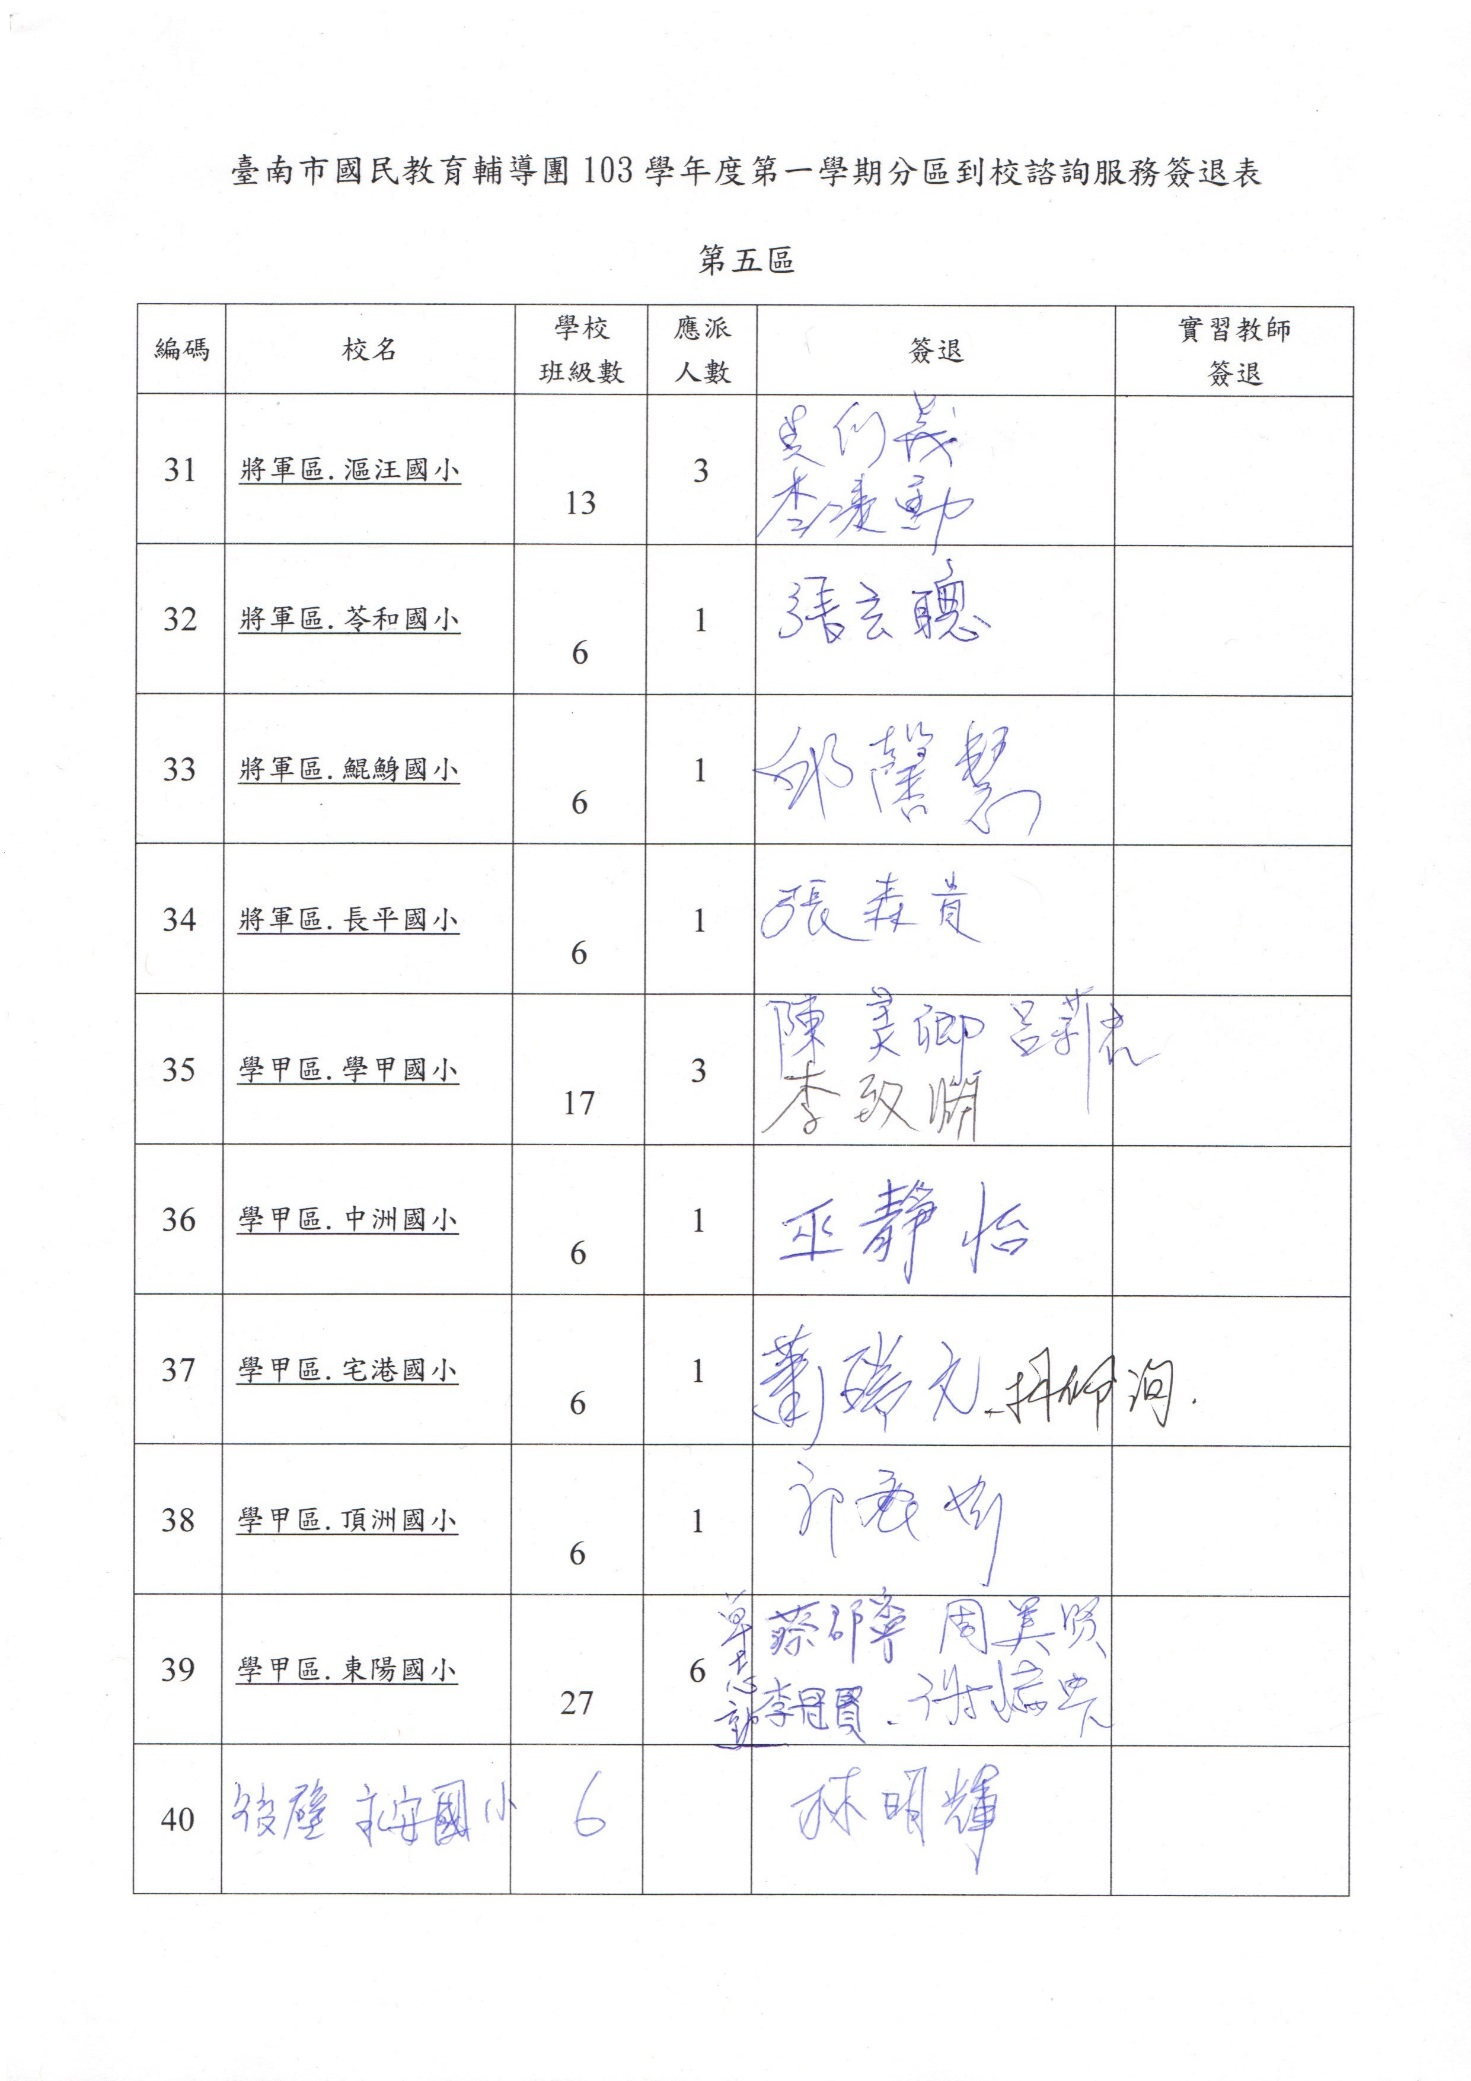 臺南市國民教育輔導團 103 學年度第一學期分區到校諮詢服務簽退表
第五區
編碼 校名 學校班級數 應派人數 簽退 實習教師簽退
31 將軍區.漚汪國小 13 3
32 將軍區.苓和國小 6 1 張玄聰
33 將軍區.鯤鯓國小 6 1 邱馨慧
34 將軍區.長平國小 6 1 張森貴
35 學甲區.學甲國小 17 3 陳美卿 呂莉
李致
36 學甲區.中洲國小 6 1 巫靜怡
37 學甲區.宅港國小 6 1
38 學甲區.頂洲國小 6 1
39 學甲區.東陽國小 27 6 蔡郡寧 周美賢
李冠賢
40 後壁 永安國小 6 林明輝